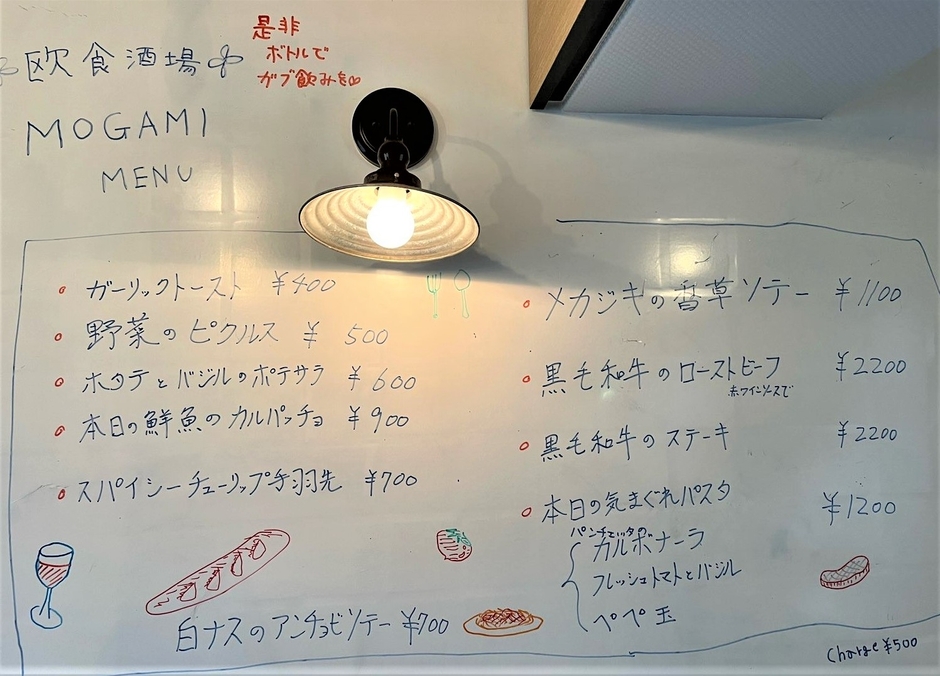 欧食酒場
是非
ボトルで
ガブ飲みを
MOGAMI
MENU
ガーリックトースト ¥400
野菜のピクルス ¥500
ホタテとバジルのポテサラ ¥600
本日の鮮魚のカルパッチョ ¥900
スパイシーチューリップ手羽先 ¥700
白ナスのアンチョビソテー ¥700
メカジキの香草ソテー ¥1100
黒毛和牛のローストビーフ ¥2200
赤ワインソースで
黒毛和牛のステーキ ¥2200
本日の気まぐれパスタ ¥1200
パンチェッタの
カルボナーラ
フレッシュトマトとバジル
ペペ玉
Charge ¥500